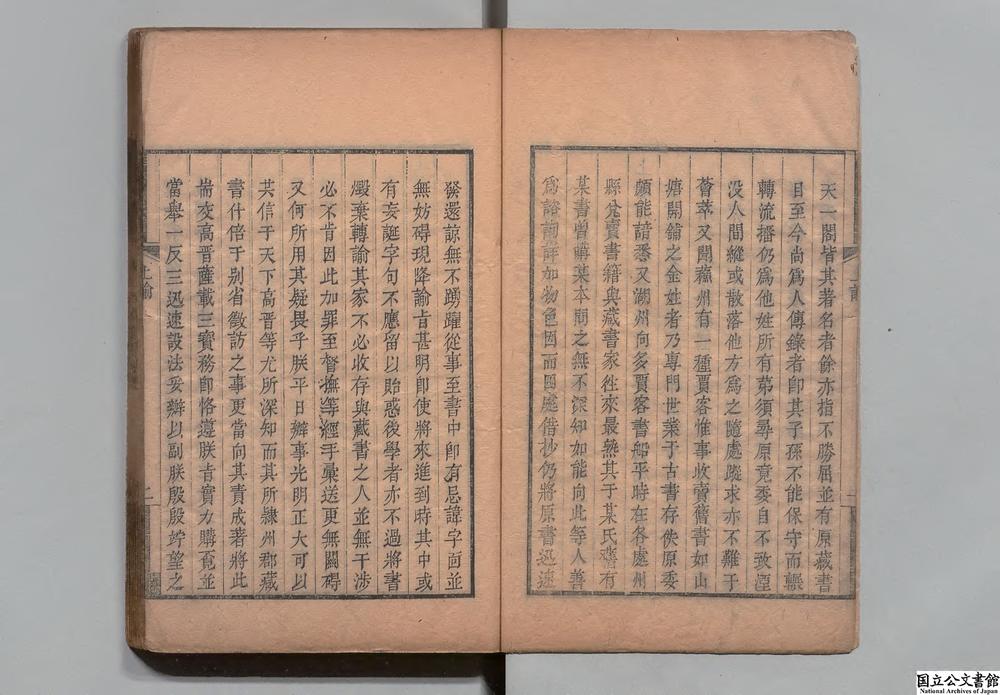 天一閣皆其著名者餘亦指不勝屈並有原藏書
目至今尚爲人傳錄者即其子孫不能保守而輾
轉流播仍爲他姓所有第須尋原竟委自不致湮
没人間縱或散落他方爲之隨處蹤求亦不難于
薈萃又聞蘇州有一種賈客惟事收賣舊書如山
塘開鋪之金姓者乃專門世業于古書存佚原委
頗能諳悉又湖州向多賈客書船平時在各處州
縣兌賣書籍與藏書家往來最熟其于某氏舊有
某書曾購某本問之無不深知如能向此等人善
爲諮詢詳加物色因而四處借抄仍將原書迅速
發還諒無不踴躍從事至書中即有忌諱字面並
無妨碍現降諭旨甚明即使將來進到時其中或
有妄誕字句不應留以貽惑後學者亦不過將書
燬棄轉諭其家不必收存與藏書之人並無干涉
必不肯因此加罪至督撫等經手彙送更無關碍
又何所用其疑畏乎朕平日辦事光明正大可以
共信于天下高晋等尤所深知而其所隸州郡藏
書什倍于别省徵訪之事更當向其責成著將此
耑交高晋薩載三寶務即恪遵朕旨實力購覓並
當舉一反三迅速設法妥辦以副朕殷殷竚望之
上諭
二
国立公文書館
National Archives of Japan